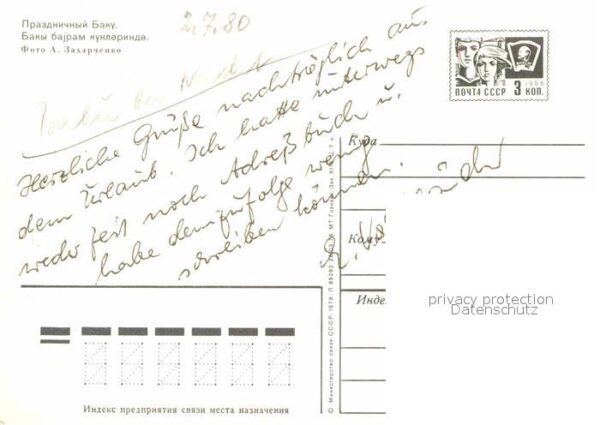 Праздничный Баку.
Бакы бајрам күнләриндә.
Фото А. Захарченко
2.7.80
Herzliche Grüße nachträglich aus
dem Urlaub. Ich hatte unterwegs
weder Zeit noch Adreßbuch u.
habe demzufolge wenig
schreiben können.
ПОЧТА СССР 3 КОП.
Куда
Кому
Индекс
privacy protection
Datenschutz
© Министерство связи СССР, 1979
Индекс предприятия связи места назначения